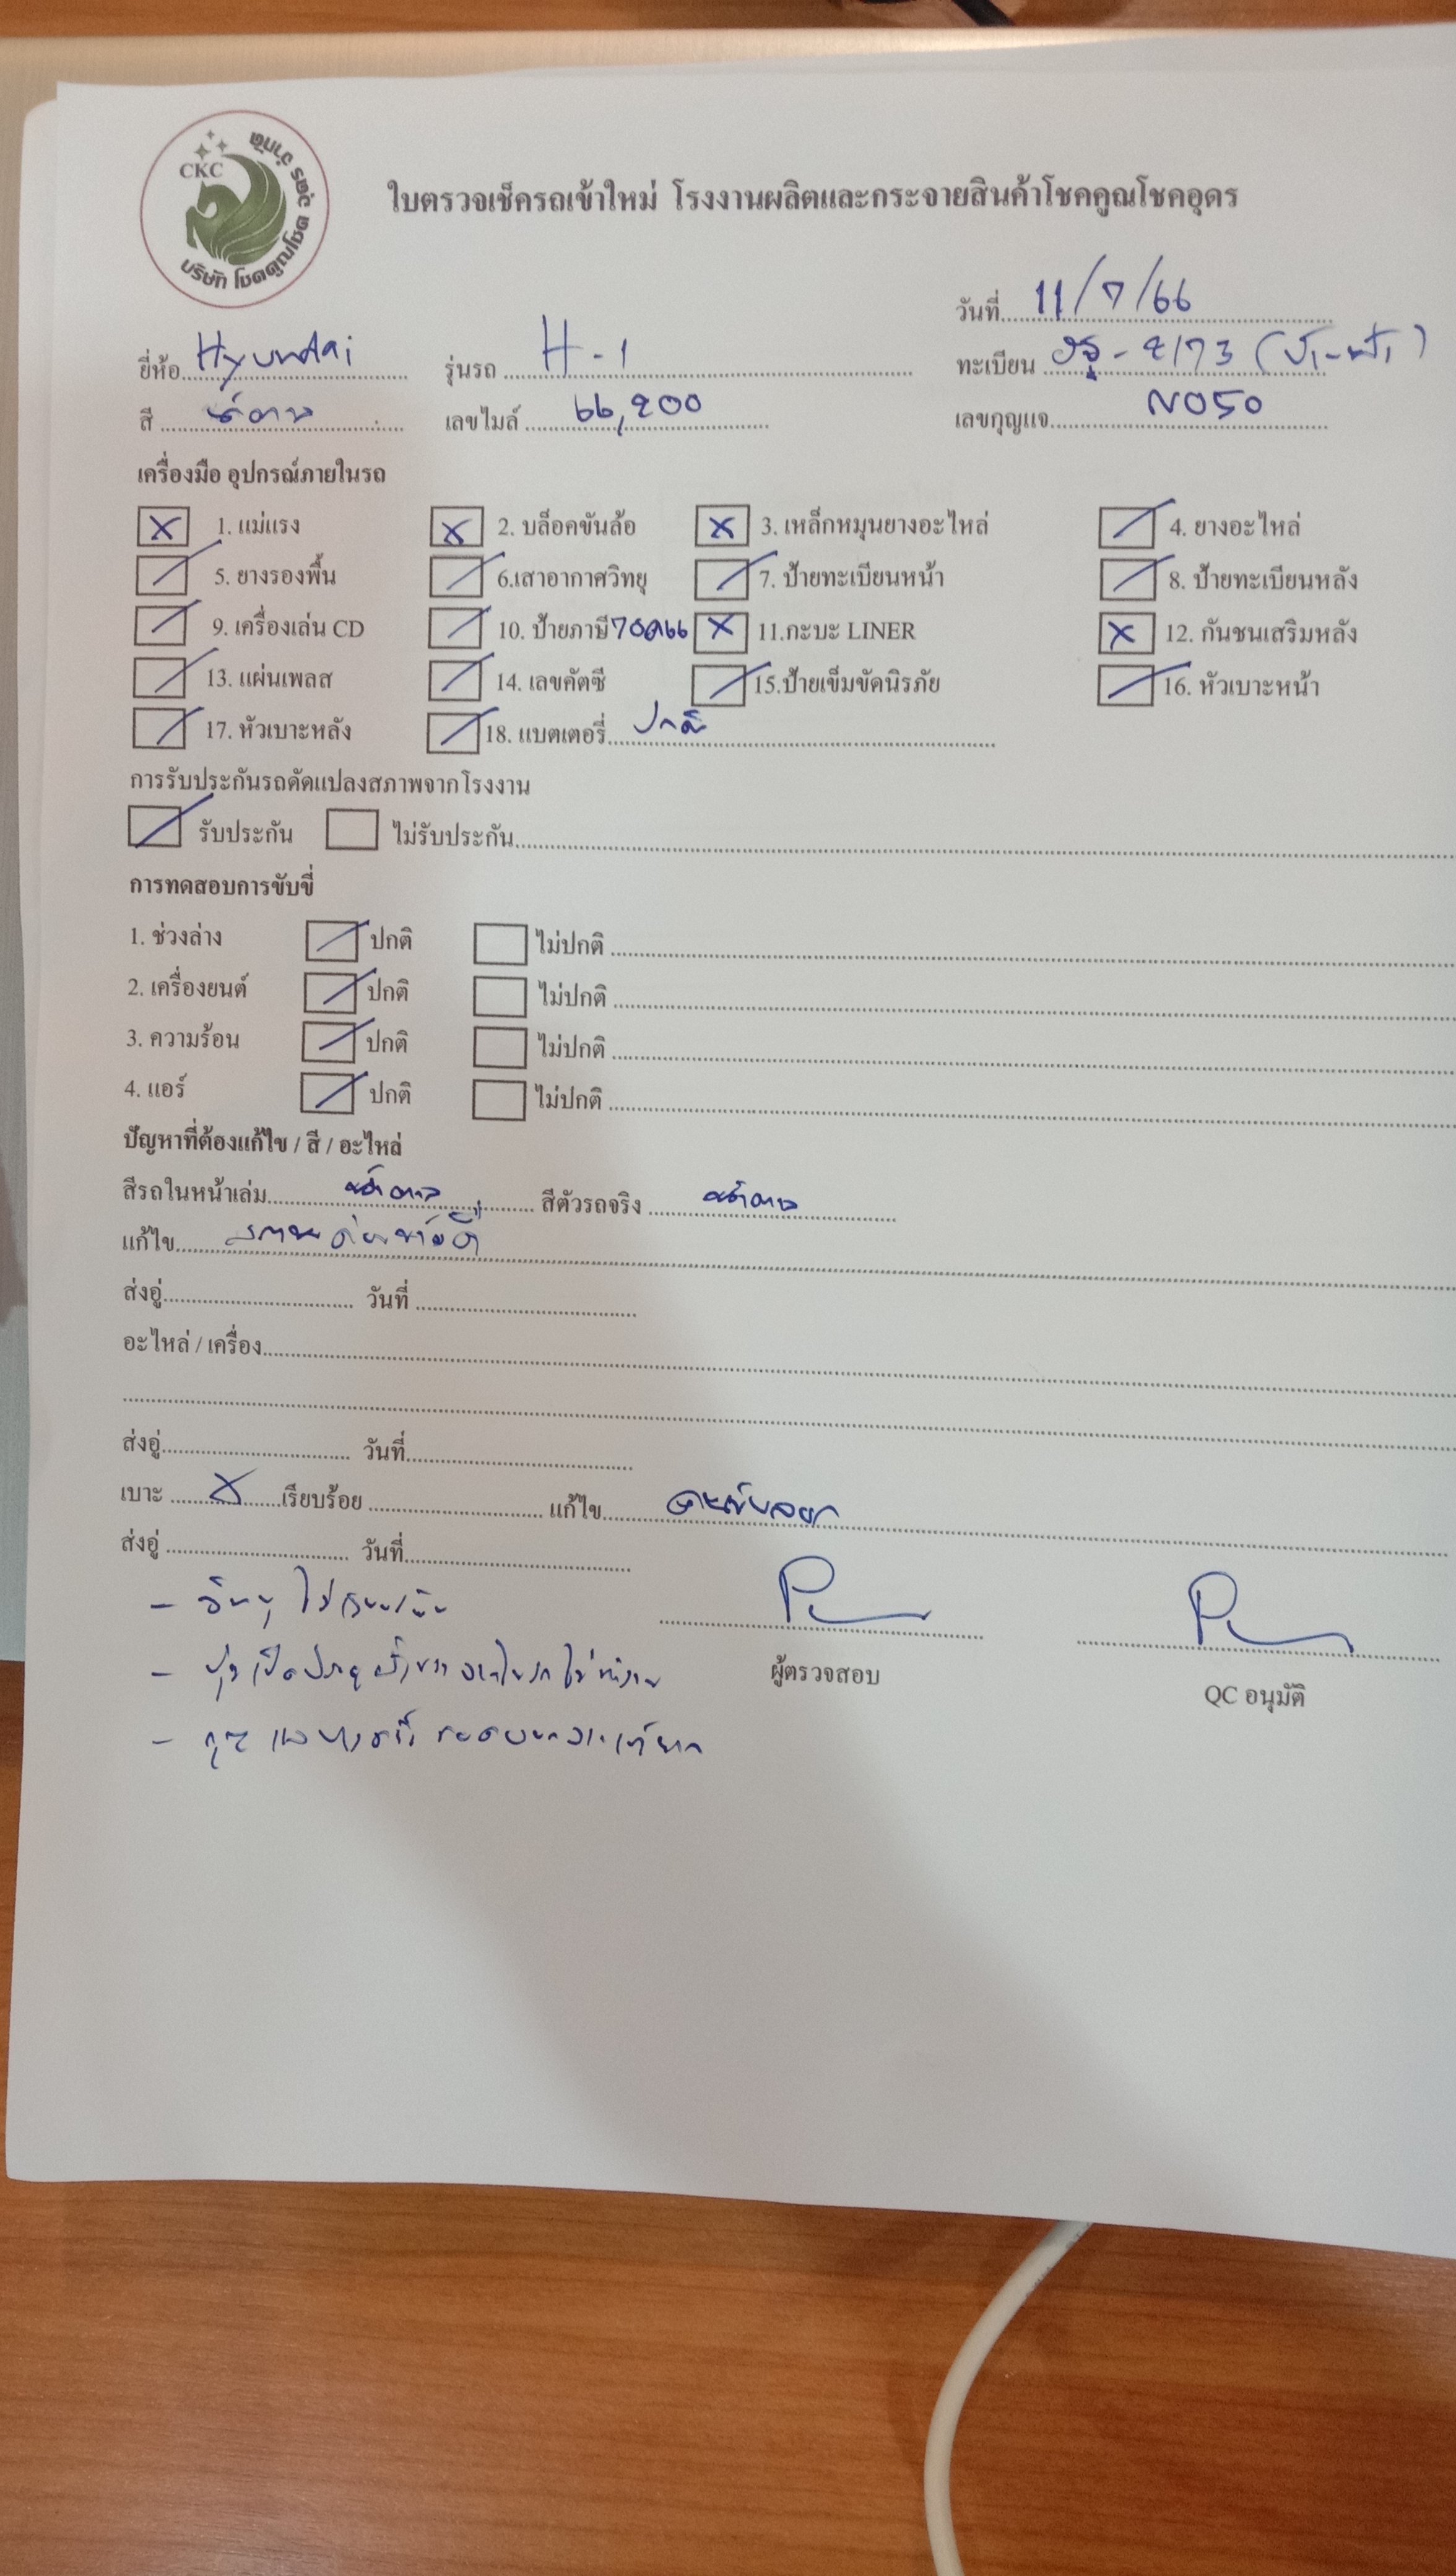 CKC
บริษัท โชคคูณโชค อุดร จำกัด
ใบตรวจเช็ครถเข้าใหม่ โรงงานผลิตและกระจายสินค้าโชคคูณโชคอุดร
วันที่ 11/7/66
ยี่ห้อ Hyundai รุ่นรถ H-1 ทะเบียน
สี น้ำตาล เลขไมล์ 66,200 เลขกุญแจ NO50
เครื่องมือ อุปกรณ์ภายในรถ
1. แม่แรง 2. บล็อคขันล้อ 3. เหล็กหมุนยางอะไหล่ 4. ยางอะไหล่
5. ยางรองพื้น 6.เสาอากาศวิทยุ 7. ป้ายทะเบียนหน้า 8. ป้ายทะเบียนหลัง
9. เครื่องเล่น CD 10. ป้ายภาษี 11.กะบะ LINER 12. กันชนเสริมหลัง
13. แผ่นเพลส 14. เลขคัตซี 15.ป้ายเข็มขัดนิรภัย 16. หัวเบาะหน้า
17. หัวเบาะหลัง 18. แบตเตอรี่ ปกติ
การรับประกันรถดัดแปลงสภาพจากโรงงาน
รับประกัน ไม่รับประกัน
การทดสอบการขับขี่
1. ช่วงล่าง ปกติ ไม่ปกติ
2. เครื่องยนต์ ปกติ ไม่ปกติ
3. ความร้อน ปกติ ไม่ปกติ
4. แอร์ ปกติ ไม่ปกติ
ปัญหาที่ต้องแก้ไข / สี / อะไหล่
สีรถในหน้าเล่ม น้ำตาล สีตัวรถจริง น้ำตาล
แก้ไข
ส่งอู่ วันที่
อะไหล่ / เครื่อง
ส่งอู่ วันที่
เบาะ X เรียบร้อย แก้ไข
ส่งอู่ วันที่
ผู้ตรวจสอบ
QC อนุมัติ